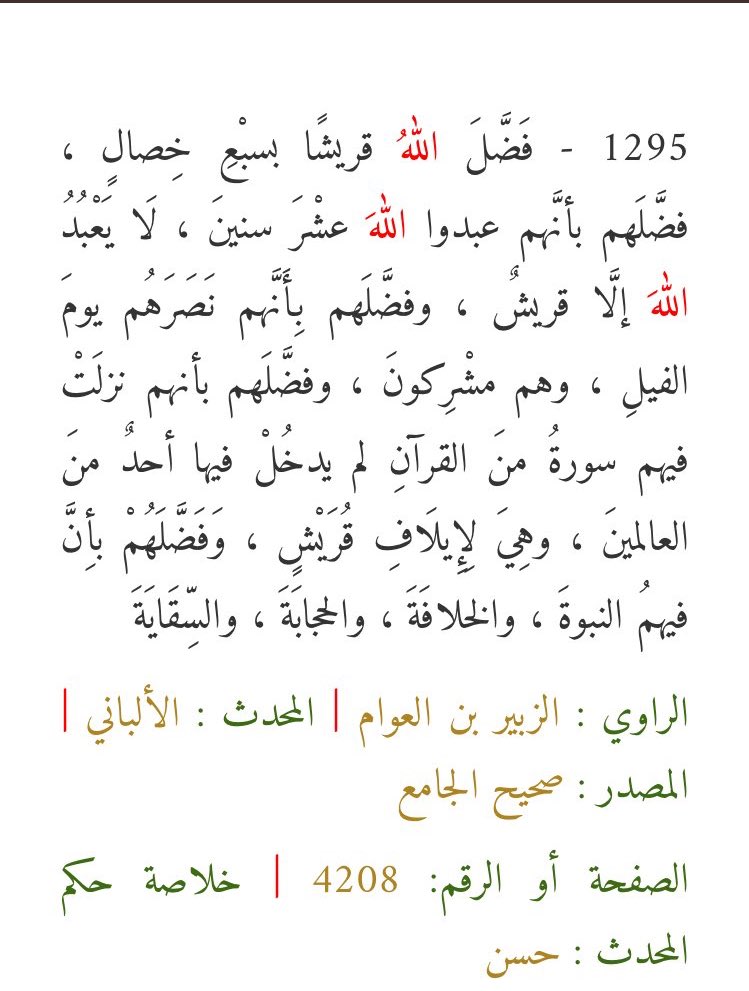 1295 - فَضَّلَ اللهُ قريشًا بسبْعِ خِصالٍ ،
فضَّلَهم بأنَّهم عبدوا اللهَ عشْرَ سنينَ ، لَا يَعْبُدُ
اللهَ إلَّا قريشٌ ، وفضَّلَهم بِأَنَّهم نَصَرَهُم يومَ
الفيلِ ، وهم مشْرِكونَ ، وفضَّلَهم بأنهم نزلَتْ
فيهم سورةُ منَ القرآنِ لم يدخُلْ فيها أحدٌ منَ
العالمينَ ، وهِيَ لِإِيلَافِ قُرَيْشٍ ، وَفَضَّلَهُمْ بأِنَّ
فيهمُ النبوةَ ، والخلافَةَ ، والحجابَةَ ، والسِّقَايَةَ
الراوي : الزبير بن العوام | المحدث : الألباني |
المصدر : صحيح الجامع
الصفحة أو الرقم: 4208 | خلاصة حكم
المحدث : حسن